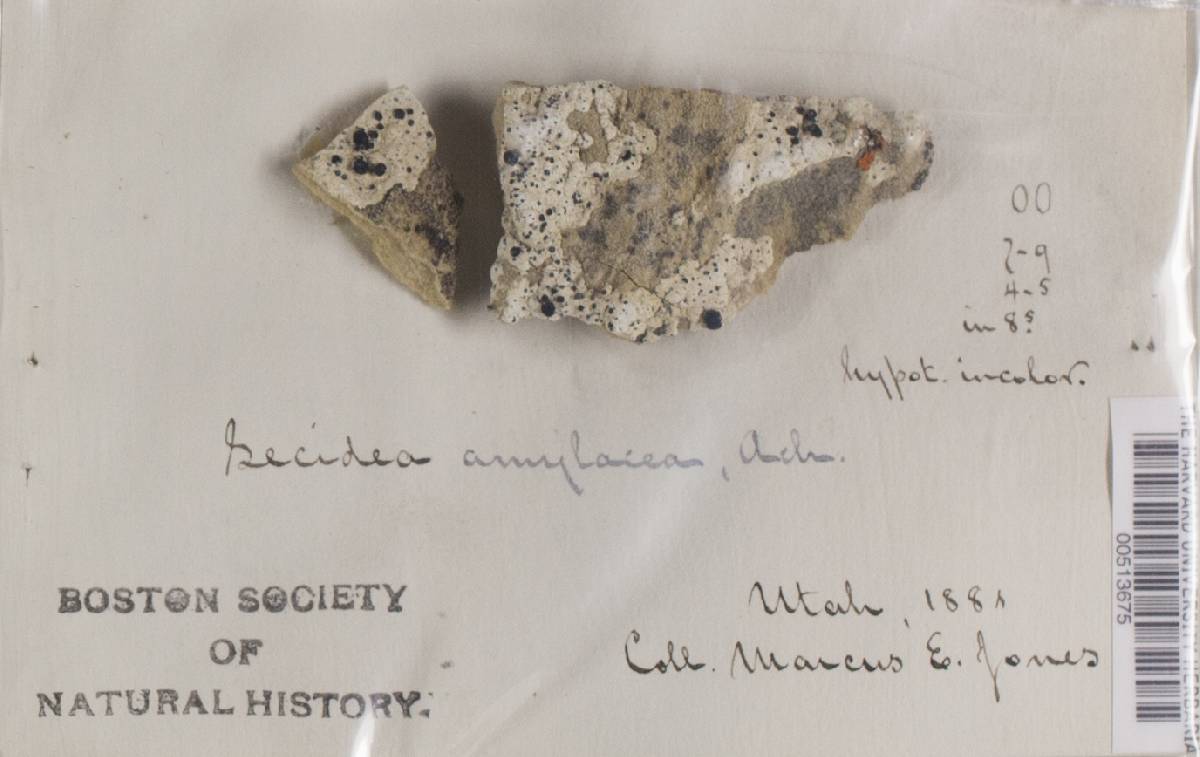 00
7-9
4-5
in 8s
hypot. incolor.
Lecidea amylacea, Ach.
BOSTON SOCIETY
OF
NATURAL HISTORY.
Utah, 1881
Coll. Marcus E. Jones
THE HARVARD UNIVERSITY HERBARIA
00513675